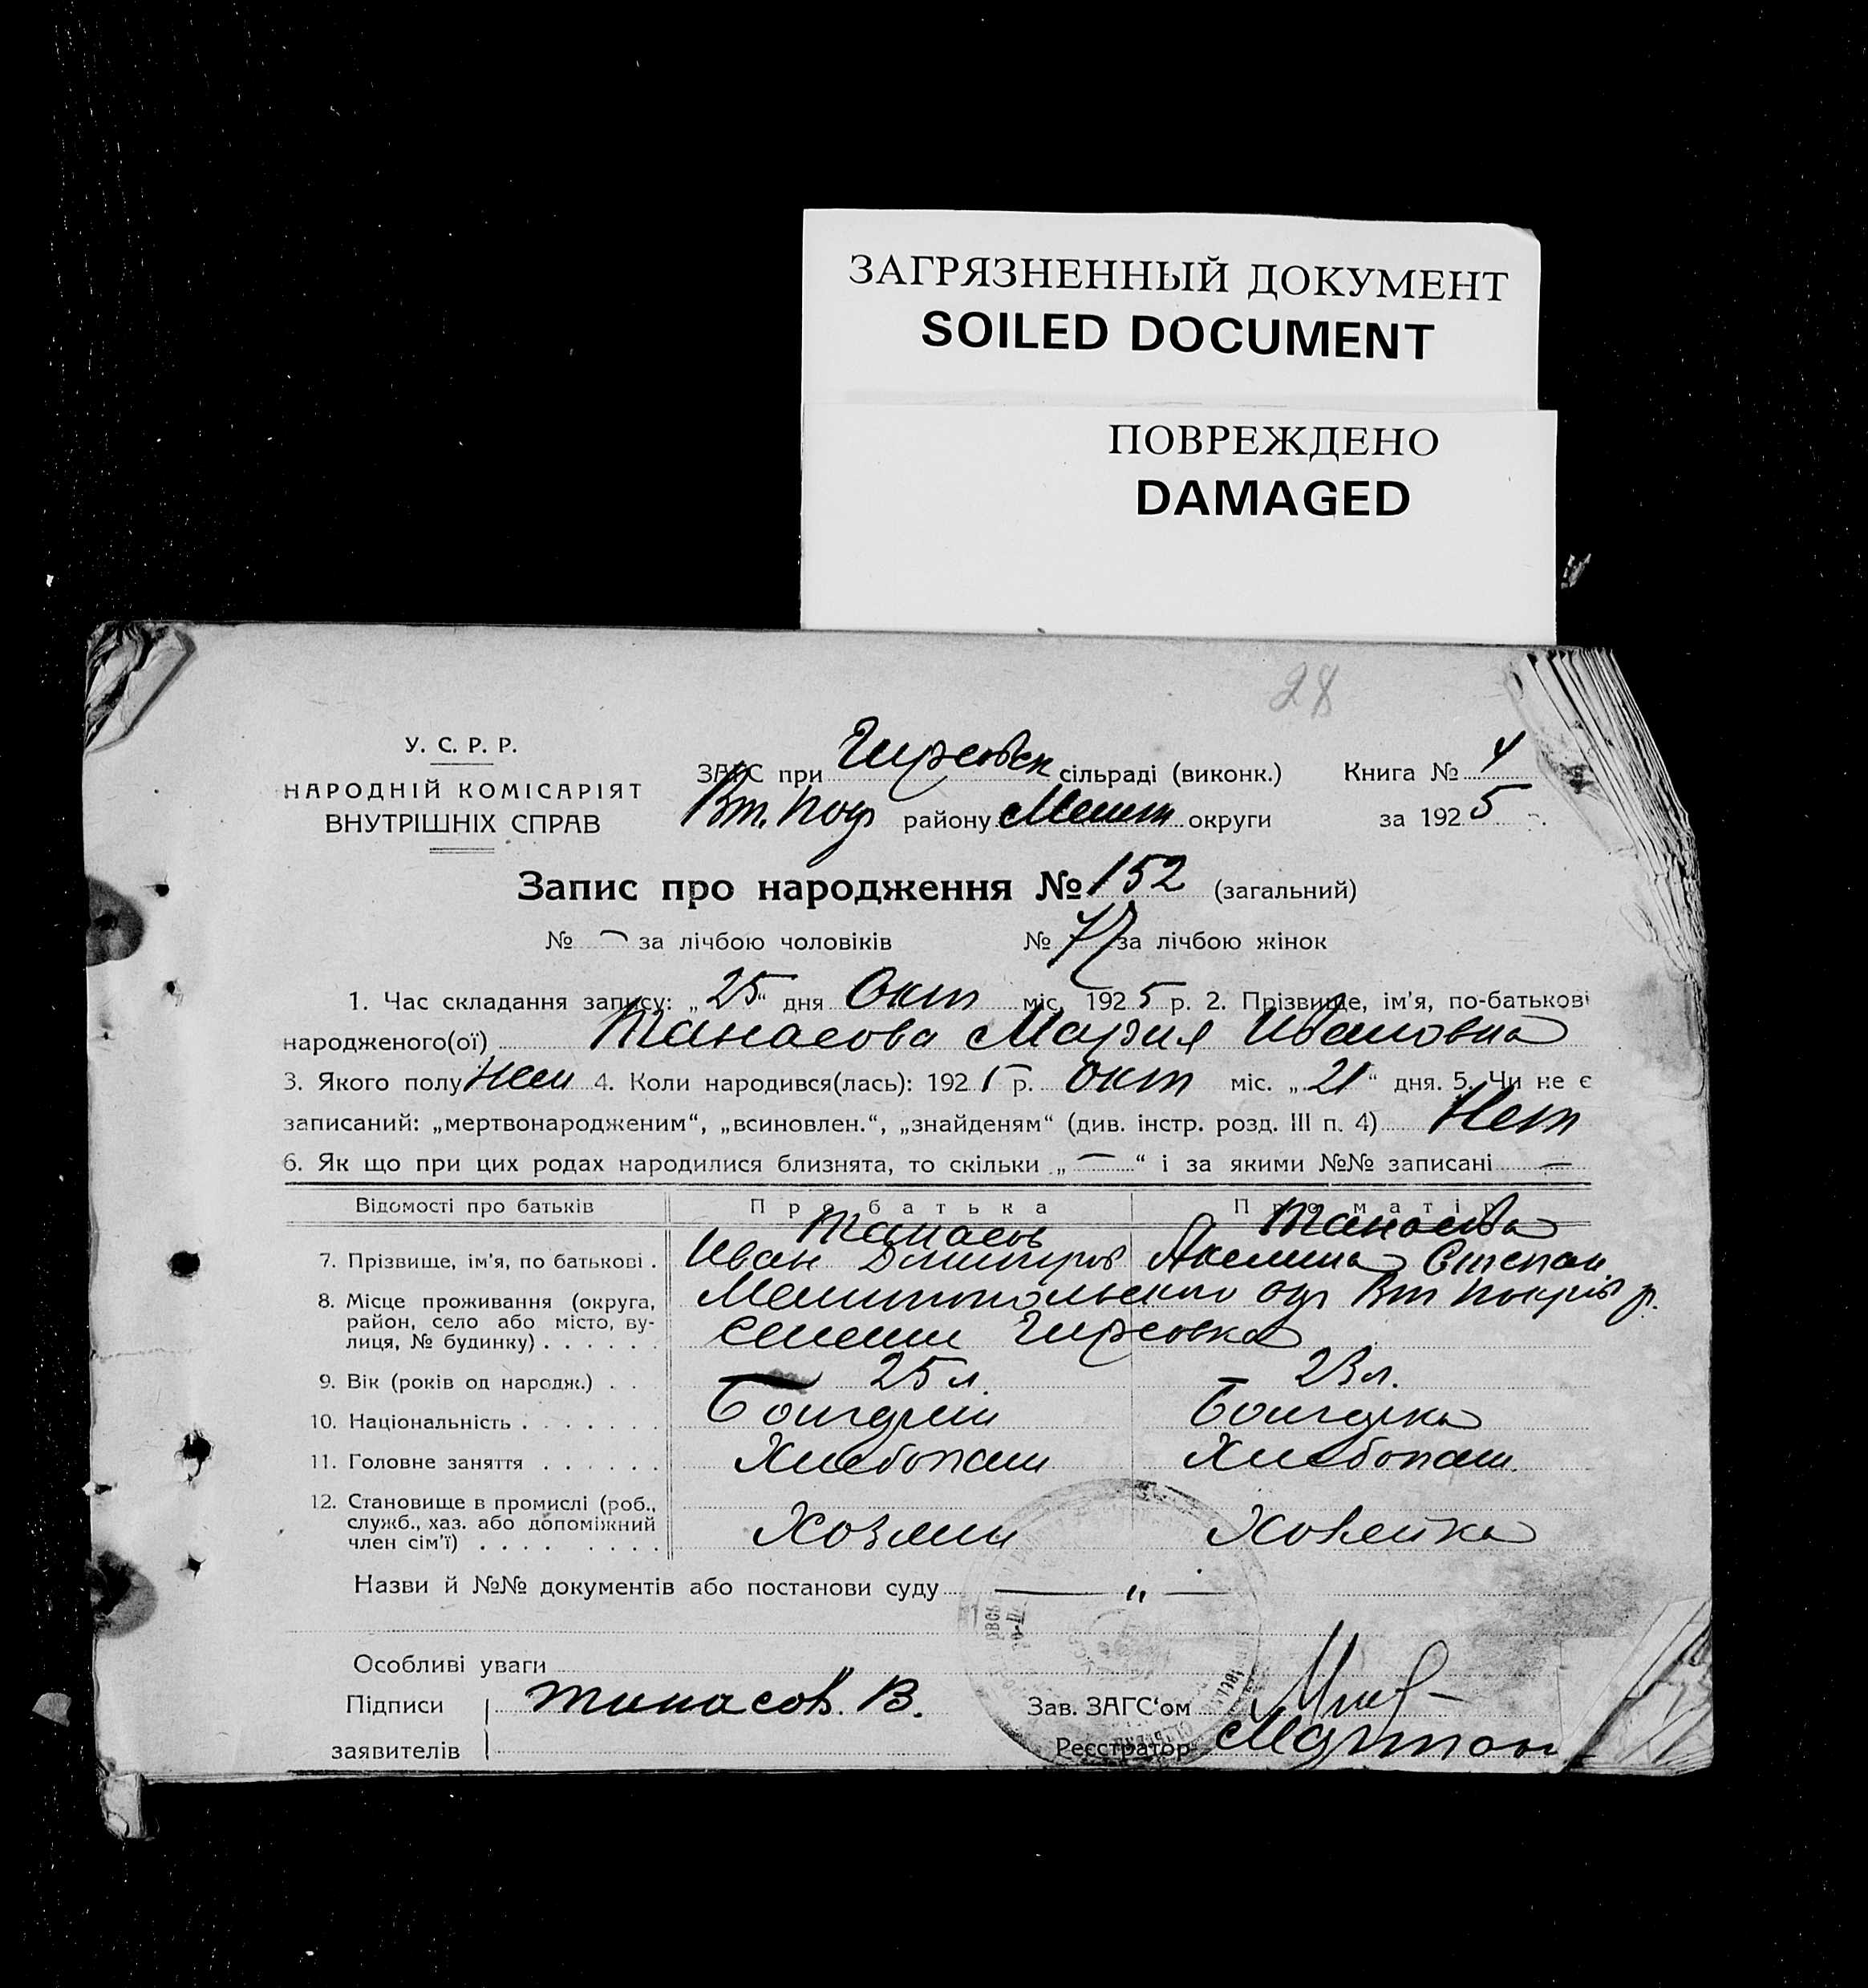 ЗАГРЯЗНЕННЫЙ ДОКУМЕНТ
SOILED DOCUMENT
ПОВРЕЖДЕНО
DAMAGED
28
У. С. Р. Р.
НАРОДНІЙ КОМІСАРІЯТ
ВНУТРІШНІХ СПРАВ
ЗАГС при Гирсовск сільраді (виконк.) Книга № 4
Вт. Покр району Мелит округи за 1925
Запис про народження № 152 (загальний)
№ — за лічбою чоловіків № 77 за лічбою жінок
1. Час складання запису: „25“ дня Окт міс. 1925 р. 2. Прізвище, ім’я, по-батькові
народженого(ої) Танасова Мария Ивановна
3. Якого полу Жен 4. Коли народився(лась): 1925 р. Окт міс. „21“ дня. 5. Чи не є
записаний: „мертвонародженим“, „всиновлен.“, „знайденям“ (див. інстр. розд. III п. 4) Нет
6. Як що при цих родах народилися близнята, то скільки „—“ і за якими №№ записані —
Відомості про батьків Про батька Про матір
Танасов Танасова
7. Прізвище, ім’я, по батькові . Иван Димитров Акелина Степан.
8. Місце проживання (округа, район, село або місто, вулиця, № будинку) . . . . . . Мелитопольского окр Вт Покров р.
селении Гирсовка
9. Вік (років од народж.) . . 25 л. 23 л.
10. Національність . . . . . . . Болгарин Болгарка
11. Головне заняття . . . . . . Хлебопаш Хлебопаш.
12. Становище в промислі (роб., служб., хаз. або допоміжний член сім’ї) . . . . . . . . Хозяин Хозяйка
Назви й №№ документів або постанови суду — „ —
Особливі уваги
Підписи Танасов. В. Зав. ЗАГС‘ом
заявителів Реєстратор